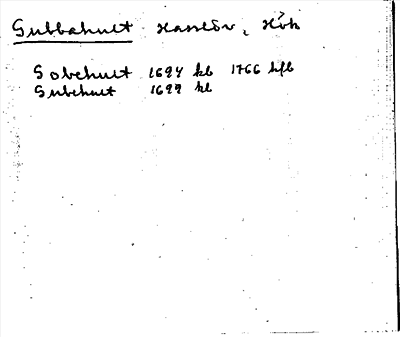 Gubbahult Hasslöv, Hök
Gobehult 1694 kb 1766 hfb
Gubehult 1699 kl